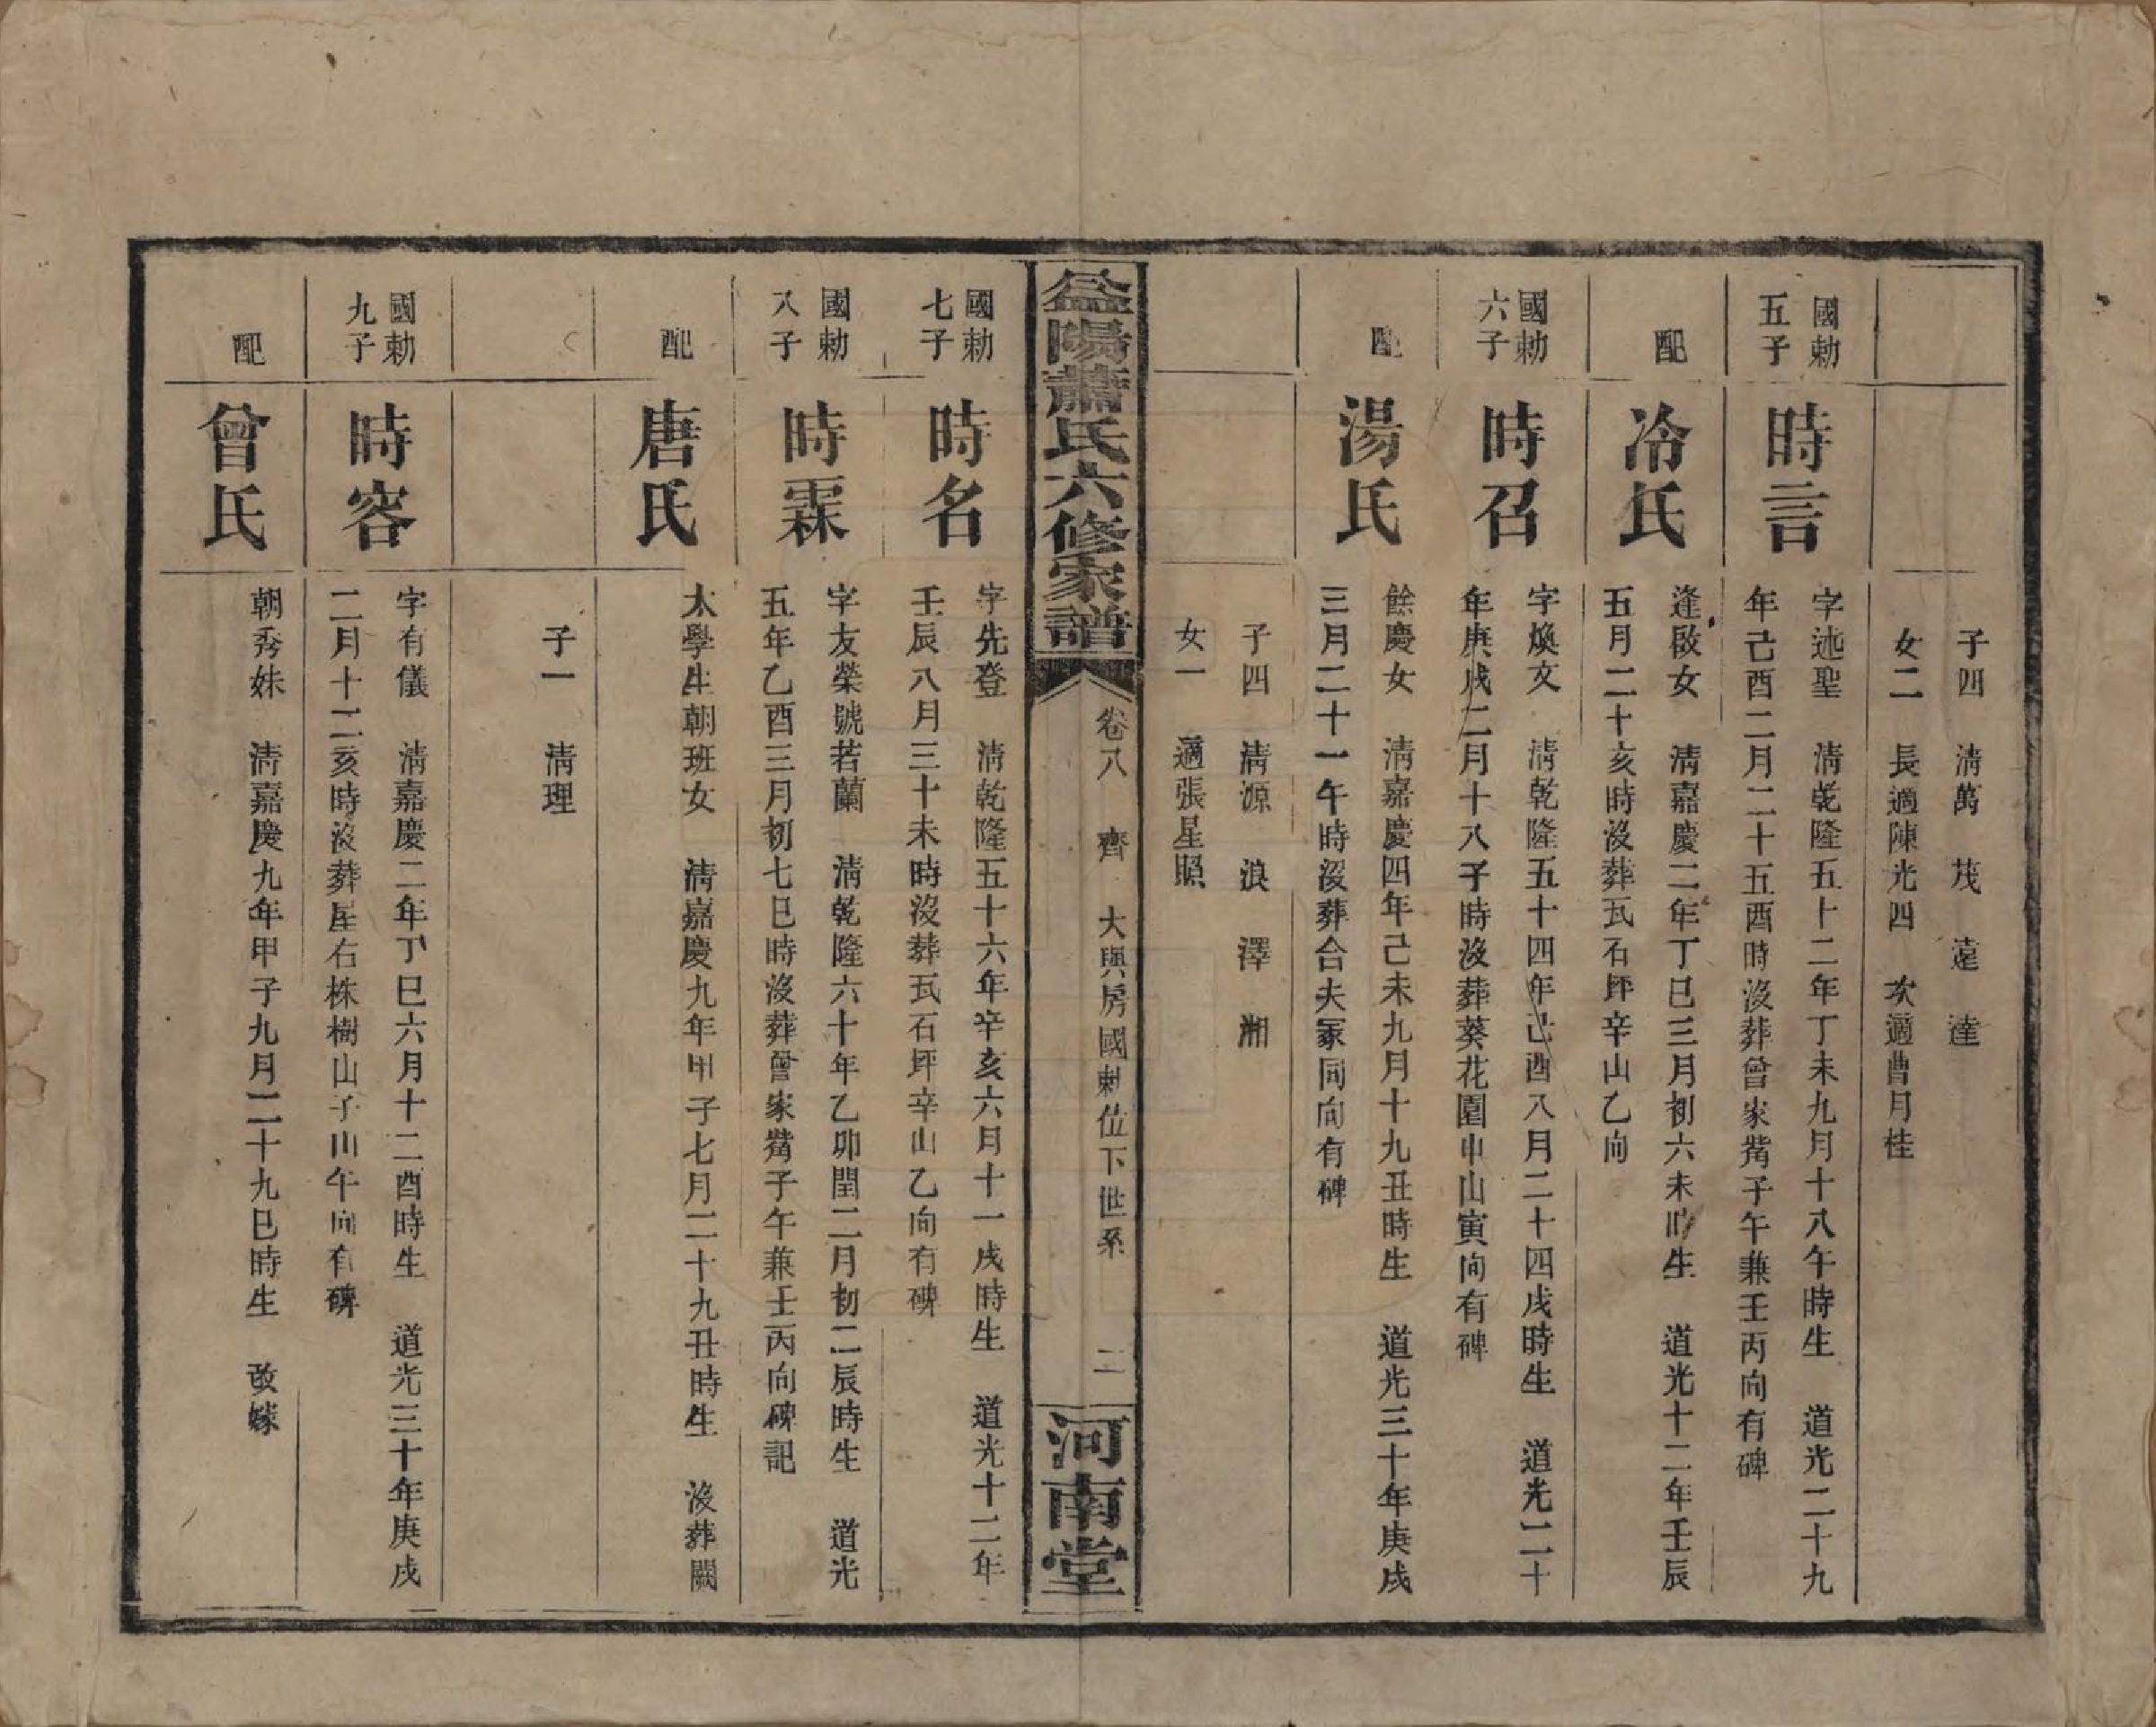 子四　清萬　茂　遠　達
女二　長適陳光四　次適曹月桂
國勅
五子
時言
字述聖　清乾隆五十二年丁未九月十八午時生　道光二十九
年己酉二月二十五酉時沒葬曾家觜子午兼壬丙向有碑
配
冷氏
逢啟女　清嘉慶二年丁巳三月初六未時生　道光十二年壬辰
五月二十亥時沒葬瓦石坪辛山乙向
國勅
六子
時召
字煥文　清乾隆五十四年己酉八月二十四戌時生　道光二十
年庚戌二月十八子時沒葬葵花園申山寅向有碑
配
湯氏
餘慶女　清嘉慶四年己未九月十九丑時生　道光三十年庚戌
三月二十一午時沒葬合夫冢同向有碑
子四　清源　浪　澤　湘
女一　適張星照
益陽蕭氏六修家譜
卷八　齊　大興房國勅位下世系　二
河南堂
國勅
七子
時名
字先登　清乾隆五十六年辛亥六月十一戌時生　道光十二年
壬辰八月三十未時沒葬瓦石坪辛山乙向有碑
國勅
八子
時霖
字友榮號若蘭　清乾隆六十年乙卯閏二月初二辰時生　道光
五年乙酉三月初七巳時沒葬曾家觜子午兼壬丙向碑記
配
唐氏
太學生朝班女　清嘉慶九年甲子七月二十九丑時生　沒葬闕
子一　清理
國勅
九子
時容
字有儀　清嘉慶二年丁巳六月十二酉時生　道光三十年庚戌
二月十二亥時沒葬屋右株樹山子山午向有碑
配
曾氏
朝秀妹　清嘉慶九年甲子九月二十九巳時生　改嫁